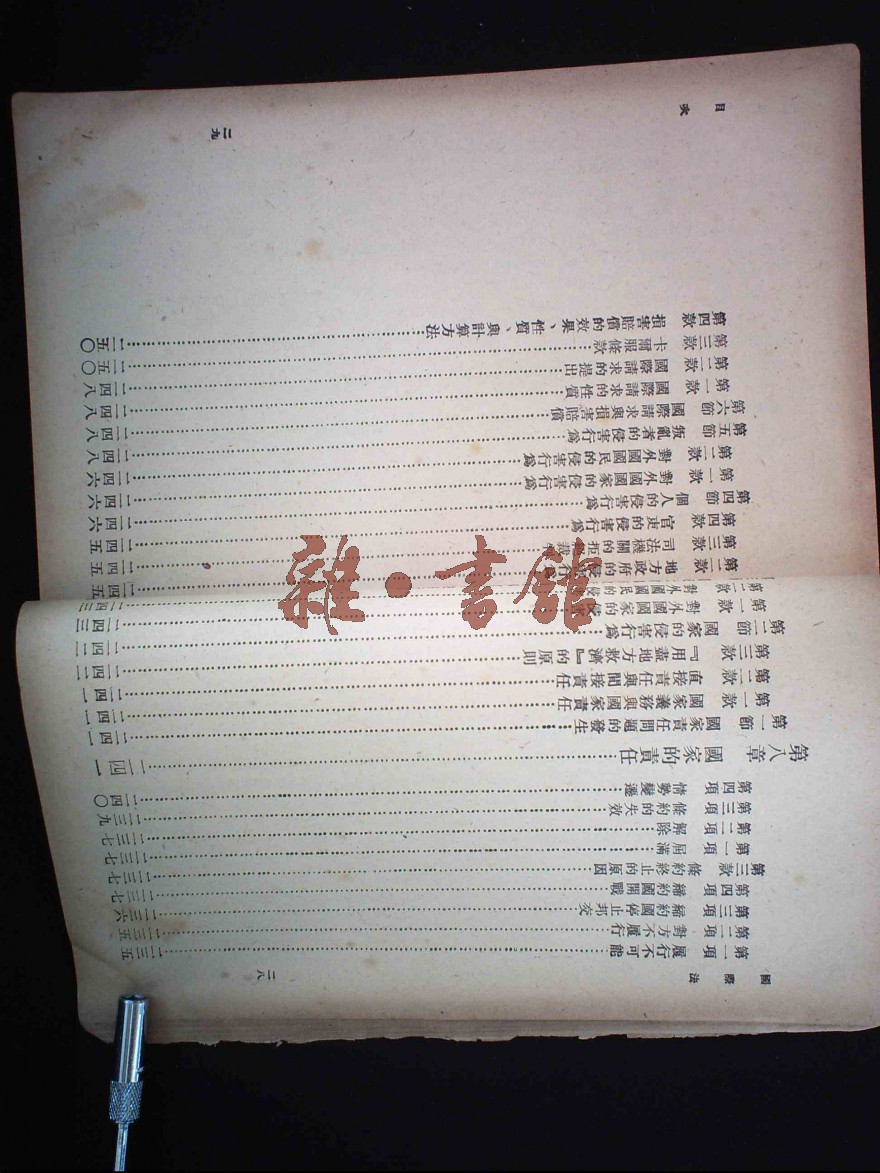 國際法 二八
第一項 履行不可能……二三五
第二項 對方不履行……二三五
第三項 締約國停止邦交……二三六
第四項 締約國開戰……二三七
第三款 條約終止的原因……二三七
第一項 屆滿……二三七
第二項 解除……二三七
第三項 條約的失效……二三九
第四項 情勢變遷……二四〇
第八章 國家的責任……二四一
第一節 國家責任問題的發生……二四一
第一款 國家義務與國家責任……二四一
第二款 直接責任與間接責任……二四一
第三款 『用盡地方救濟』的原則……二四二
第二節 國家的侵害行為……二四二
第一款 對外國國家的侵害……二四三
目次 二九
第二款 地方政府的侵害行……二四五
第三款 司法機關的拒絕裁……二四五
第四款 官吏的侵害行為……二四五
第四節 個人的侵害行為……二四六
第一款 對外國國家的侵害行為……二四六
第二款 對外國國民的侵害行為……二四六
第五節 叛亂者的侵害行為……二四八
第六節 國際請求與損害賠償……二四八
第一款 國際請求的性質……二四八
第二款 國際請求的提出……二四八
第三款 卡爾服條款……二五〇
第四款 損害賠償的效果、性質、與計算方法……二五〇
雜·書館